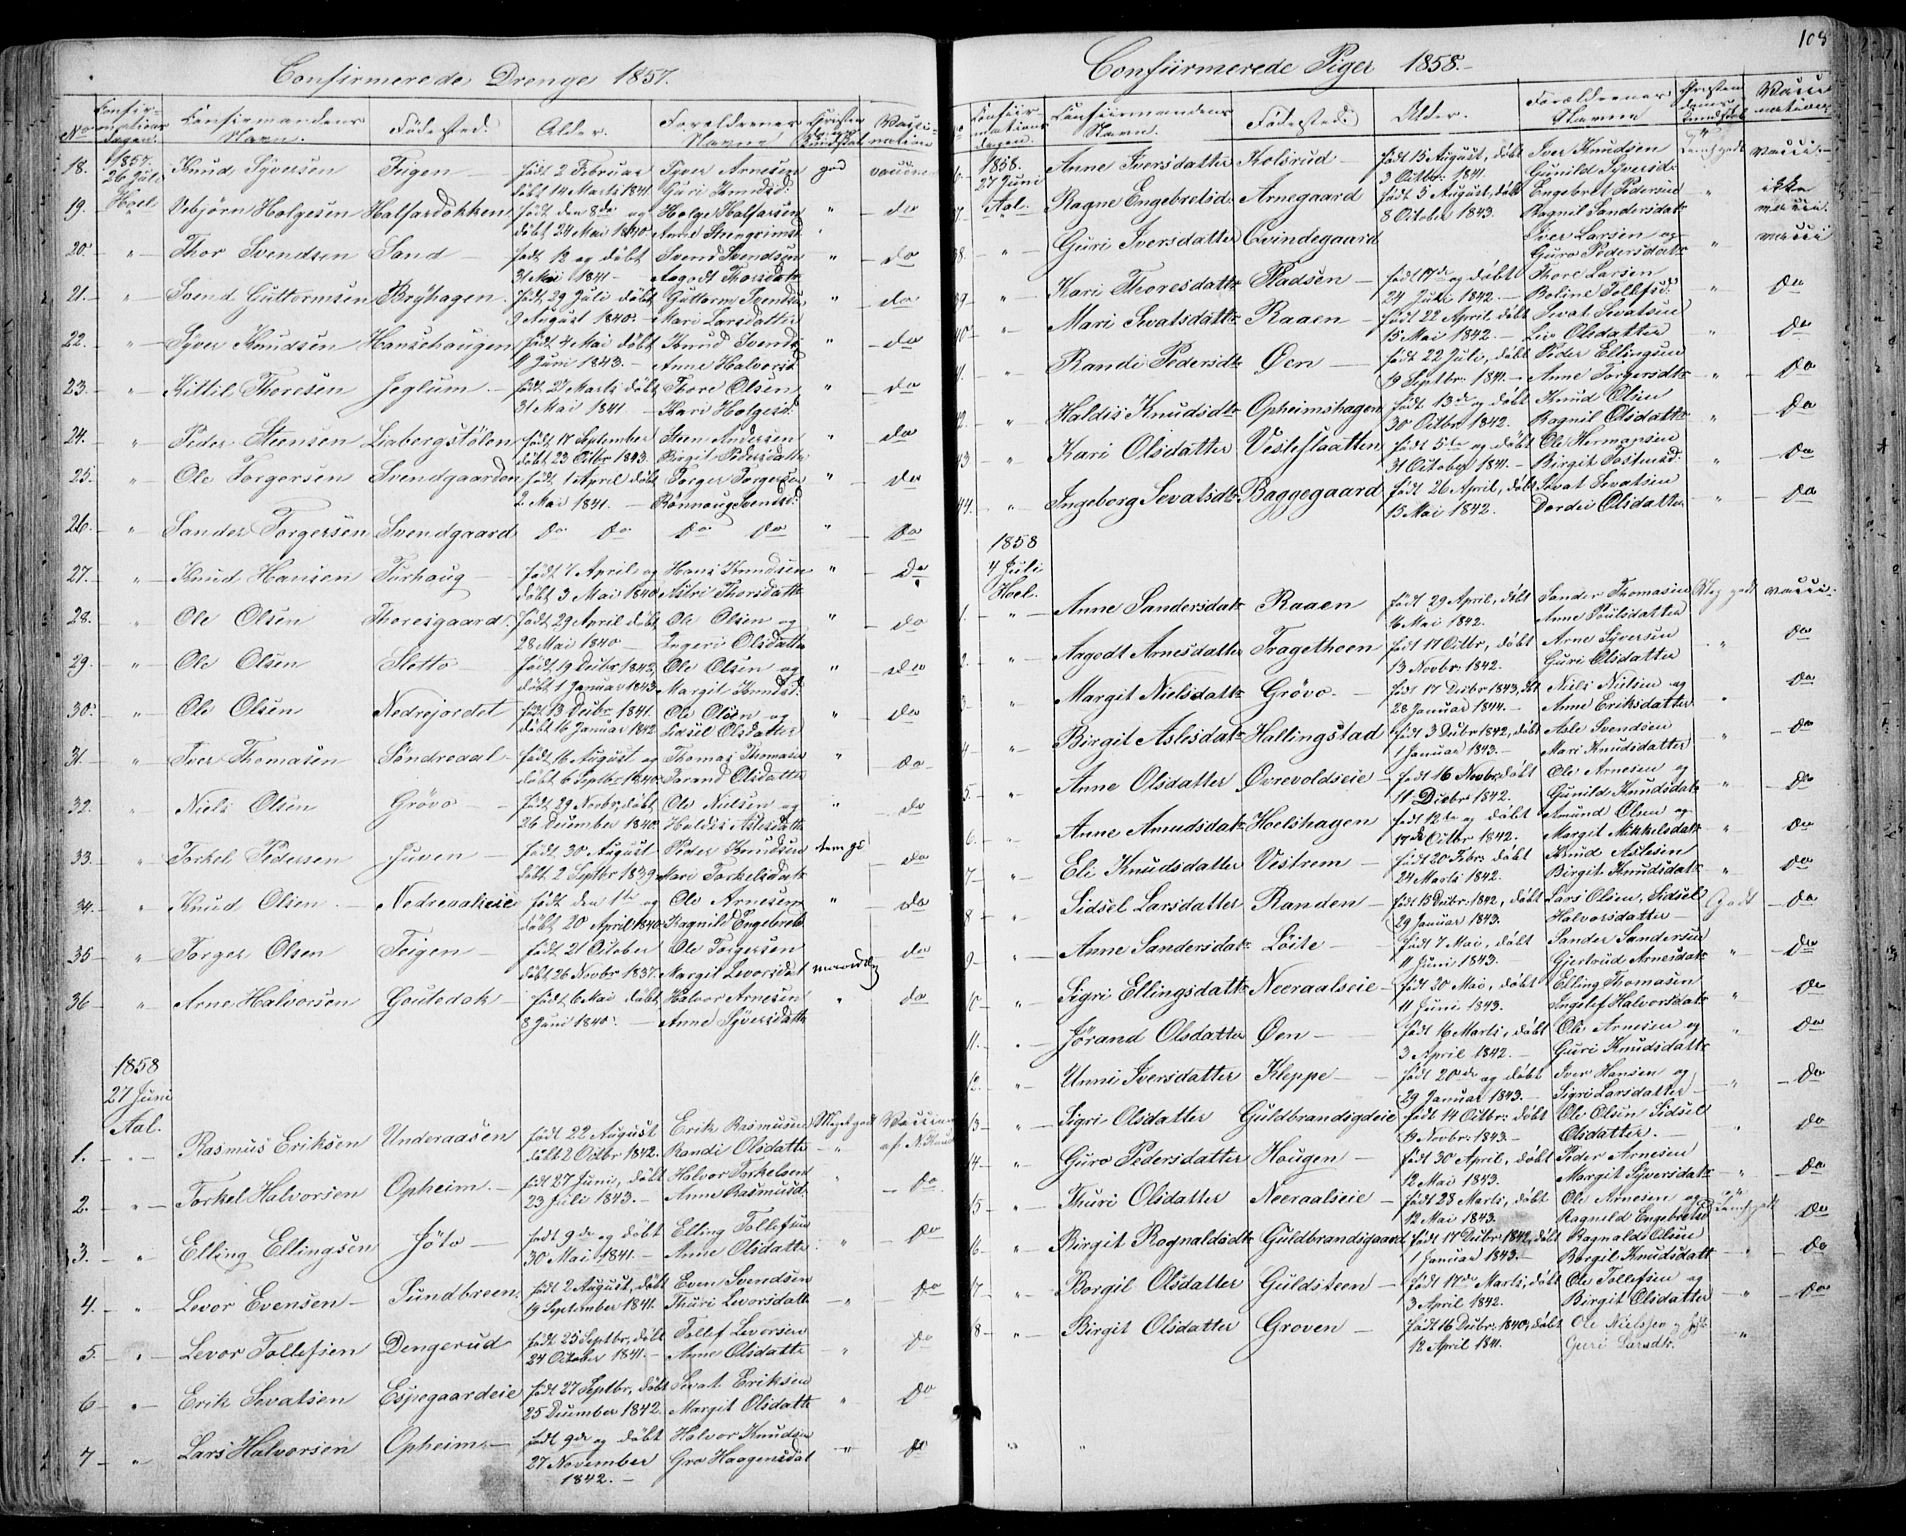 Confirmerede Drenge 1857.
No Confirmations dagen. Confirmandens Navn. Fødested. Alder. Forældrenes Navne Christendoms Kundskab Vaccination
18. 1857. 26 Juli Knud Syversen Teigen født 2 Februar Syver Arnesen god vaccine
Hoel døbt 14 Marts 1841 Guri Knudsd.
19. " Vebjørn Holgesen Halfardokken født den 8de og Holge Halfarsen " do
døbt 24 Mai 1840 Anne Steengrimsd
20. " Thor Svendsen Sand født 12 og døbt Svend Svendsen " do
31 Mai 1841 Aagodt Thorsdatr
21. " Svend Guttormsen Bryhagen født 29 Juli døbt Guttorm Svendsen " do
9 August 1840. Mari Larsdatter
22. " Syver Knudsen Hansehaugen født 4 Mai døbt Knud Svends " do
11 Juni 1843. Anne Halvorsd
23. " Kittil Thoresen Jeglum født 27 Marts døbt Thore Olsen " do
31 Mai 1841 Kari Holgesd.
24. " Peder Steensen Liabergstølen født 17 September Steen Andersen " do
døbt 23 Octbr 1843 Birgit Pedersdatter
25. " Ole Torgersen Svendgaarden født 1 April døbt Torger Torgersen " do
2 Mai 1841. Rønnaug Svendsd.
26. " Sander Torgersen Svendgaard do do do do " do
27. " Knud Hansen Turhaug født 7 April og Hans Knudsen " do
døbt 3 Mai 1840 Astri Thorsdatter
28. " Ole Olsen Thoresgaard født 29 April døbt Ole Olsen og " do
28 Mai 1840 Ingeri Olsdatter
29. " Ole Olsen Sletto født 19 Decbr 1842, Ole Olsen og " do
døbt 1 Januar 1843 Margit Knudsd.
30. " Ole Olsen Nedrejordet født 13 Decbr 1841 Ole Olsen og " do
døbt 16 Januar 1842 Sidsel Olsdatter
31. " Iver Thomasen Søndreaal født 16 August og Thomas Thomasen " do
døbt 6 Septbr 1840. Jorand Olsdatter
32. " Niels Olsen Grøvo født 29 Novbr, døbt Ole Nielsen og " do
26 December 1840. Haldis Aslesdatter
33. " Torkel Pedersen Juven født 30 August Peder Knudsen do
døbt 2 Septbr 1839 Mari Torkelsdatr
34. " Knud Olsen Nedreaaleie født den 1ste og Ole Arnesen " do
døbt 20 April 1840. Ragnild Engebretsd
35. " Torger Olsen Teigen født 21 October Ole Torgersen do
døbt 26 Novbr 1837. Margit Levorsdat
36. " Arne Halvorsen Goutedok født 6 Mai døbt Halvor Arnesen " do
8 Juni 1840. Anne Syversdatter
1858
27 Juni
Aal.
1. Rasmus Eriksen Underaasen født 22 August Erik Rasmusen Meget godt Vaccine
døbt 2 Octbr 1842. Randi Olsdatter
2. " Torkel Halvorsen Opheim født 27 Juni, døbt Halvor Torkelsen " do
23 Juli 1843. Anne Rasmusd.
3. " Elling Ellingsen Jøto født 9de og døbt Elling Tollefsen " do
30 Mai 1841. Anne Olsdatter
4. " Levor Evensen Sundbreen født 2 August, døbt Even Svendsen " do
19 September 1841. Thuri Levorsdatter
5. " Levor Tollefsen Dengerud født 25 Septbr, døbt Tollef Levorsen " do
24 October 1841. Anne Olsdatter
6. " Erik Sevatsen Espegaardeie født 27 Septbr, døbt Sevat Eriksen " do
25 December 1842. Margit Olsdatter
7 " Lars Halvorsen Opheim født 9de og døbt Halvor Knudsen " do
27 November Gro Haagensdat
1842.
108
Confiirmerede Piger 1858.
Confiirmations dagen Confiirmandens Navn. Fødested. Alder. Forældrenes Navne Christendoms Kundskab Vaccination
1858. 27 Juni Anne Iversdatter Kolsrud født 15 August, døbt Iver Knudsen vacci.
3 Octbr 1841. Gunild Syversd.
Aal. Ragne Engebretsd. Arnegaard født 5 August, døbt Engebret Pedersen " ikke
8 October 1843. Ragnil Sandersdatr vacci.
38. " Guri Iversdatter Qvindegaard Iver Larsen og " vacci
Guro Pedersdatr
39. " Kari Thoresdatter Pladsen født 17de og døbt Thore Larsen " do
24 Juli 1842. Boline Tollefsd.
40. " Mari Sevatsdatter Raaen født 22 April døbt Sevat Sevatsen " do
15 Mai 1842. Liv Olsdatter
41. " Randi Pedersdtr Øen født 22 Juli, døbt Peder Ellingsen " do
19 Septbr. 1841. Anne Torgersdtr
42. " Haldis Knudsdtr Opheimshagen født 13de og døbt Knud Olsen " do
30 Octbr 1842. Ragnil Olsdatter
43. " Kari Olsdatter Vesleslaatten født 5te og døbt Ole Hermansen " do
31 October 1841. Birgit Tostensd.
44. " Ingeborg Sevatsdtr Baggegaard født 26 April, døbt Sevat Sevatsen " do
15 Mai 1842. Dordei Olsdatter
1858
4 Juli
Hoel.
1. " Anne Sandersdatr Raaen født 29 April, døbt Sander Thomasen Meg godt vacci.
16 Mai 1842. Anne Poulsdatter
2. " Aagodt Arnesdatter Tragethoen født 17 Octbr, døbt Arne Syversen " do
13 Novbr. 1842. Guri Olsdatter
3 " Margit Nielsdatr Grøvo født 17 Decbr 1843, dbt Niels Nielsen og " do
28 Januar 1844. Anne Eriksdatter
4 " Birgit Aslesdatr Hallingstad født 3 Decbr 1842, døbt Asle Svendsen " do
1 Januar 1843. Mari Knudsdatter
5. " Anne Olsdatter Øvrevoldseie født 16 Novbr, døbt Ole Arnesen og " do
11 Decbr 1842. Gunild Knudsdatr
6 " Anne Amudsdatr Hoelshagen født 12te og døbt Amund Olsen og " do
17de Octbr 1842. Margit Mikkelsdatr
7 " Eli Knudsdatter Vestrem født 20 Febr. døbt Knud Aslesen " do
24 Marts 1842. Birgit Knudsdatr
8 " Sidsel Larsdatter Randen født 15 Decbr. 1842, døbt Lars Olsen, Sidsel Godt do
29 Januar 1843. Halvorsdatter
9 " Anne Sandersdatr Løite født 7 Mai, døbt Sander Sandersen " do
11 Juni 1843. Gjertrud Arnesdatr
10 " Sigri Ellingsdatr Neeraalseie født 20 Mai, døbt Elling Thomasen " do
11 Juni 1843. Ingelef Halvorsdatr
11. " Jørand Olsdatter Øen født 16 Marts, døbt Ole Arnesen og " do
3 April 1842. Guri Knudsdatter
12. " Unni Iversdatter Kleppe født 20de og døbt Iver Hansen og " do
29 Januar 1843. Sigri Larsdatter
13 " Sigri Olsdatter Guldbrandsgdeie født 14 Octbr: døbt Ole Olsen Sidsel " do
19 Novbr: 1843. Olsdatter.
14 " Guro Pedersdatter Hougen født 30 April, døbt Peder Arnesen " do
12 Mai 1843. Margit Syversdatr
15 " Thuri Olsdatter Neeraalseie født 28 Marts, døbt Ole Arnesen og do
12 Mai 1843. Ragnild Engebretsd
16 " Birgit Rognaldsdtr Guldbrandsgaard født 17 Decbr 1842, døbt Ragnald Olsen " do
1 Januar 1843. Borgil Knudsdatter
17 " Borgil Olsdatter Guldsteen født 17de Marts, døbt Ole Tollefsen og " do
3 April 1842. Birgit Olsdatter
18 " Birgit Olsdatter Groven født 16 Decbr. 1840, døbt Ole Nielssen "
12 April 1841. Guri Larsdtr.